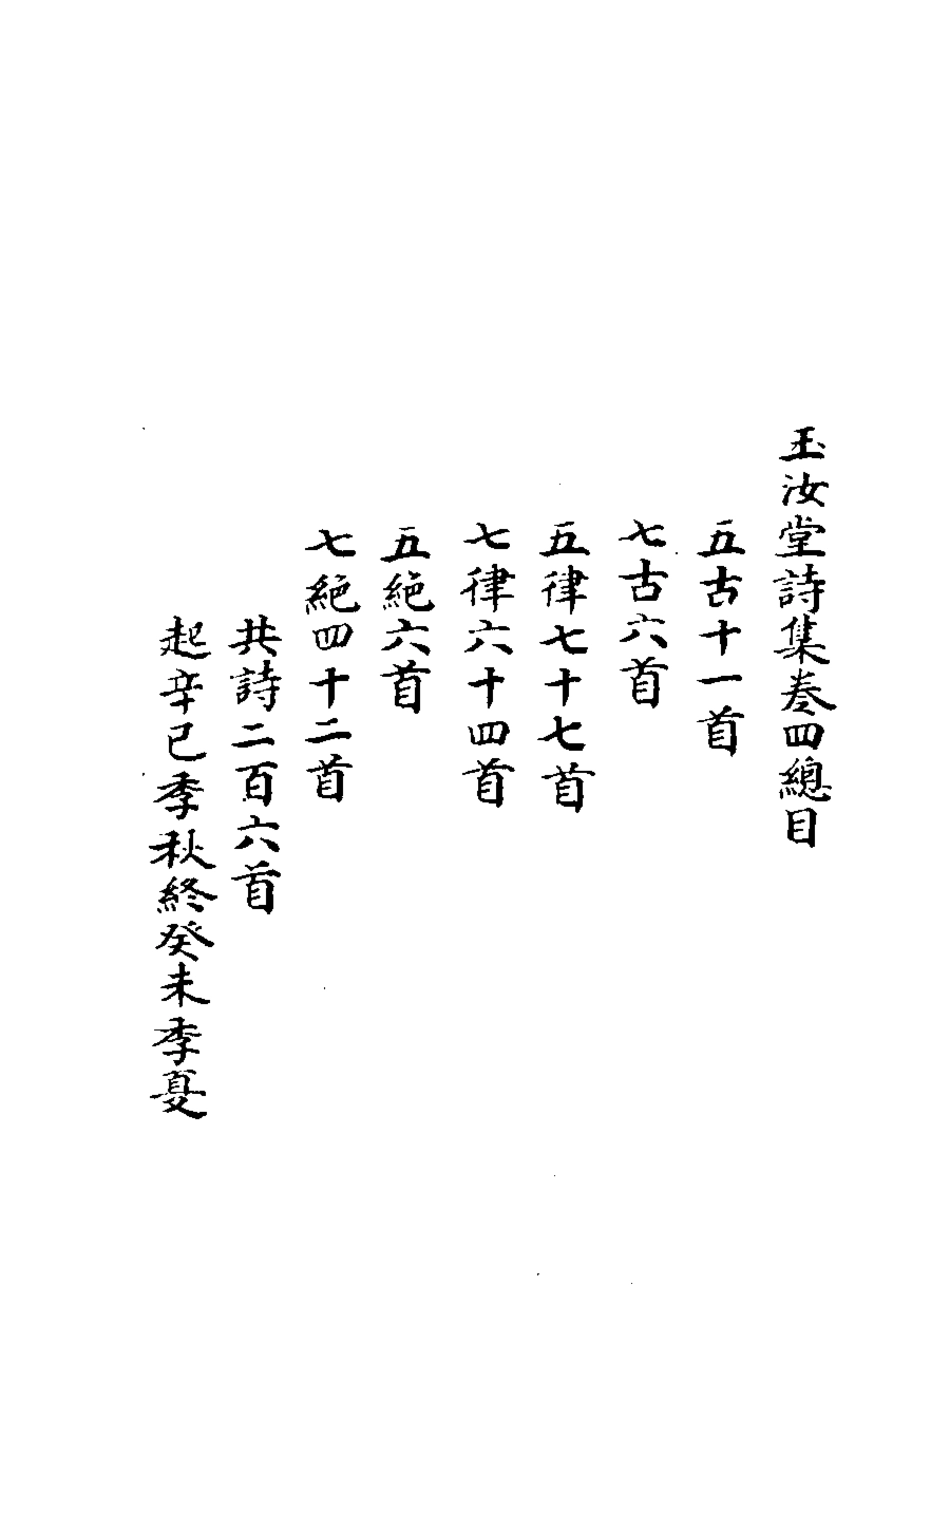 玉汝堂詩集卷四總目
五古十一首
七古六首
五律七十七首
七律六十四首
五絕六首
七絕四十二首
共詩二百六首
起辛巳季秋終癸未季夏